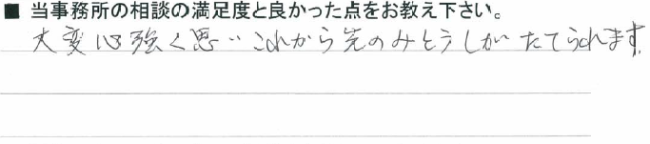 ■ 当事務所の相談の満足度と良かった点をお教え下さい。
大変心強く思いこれから先のみとうしがたてられます。